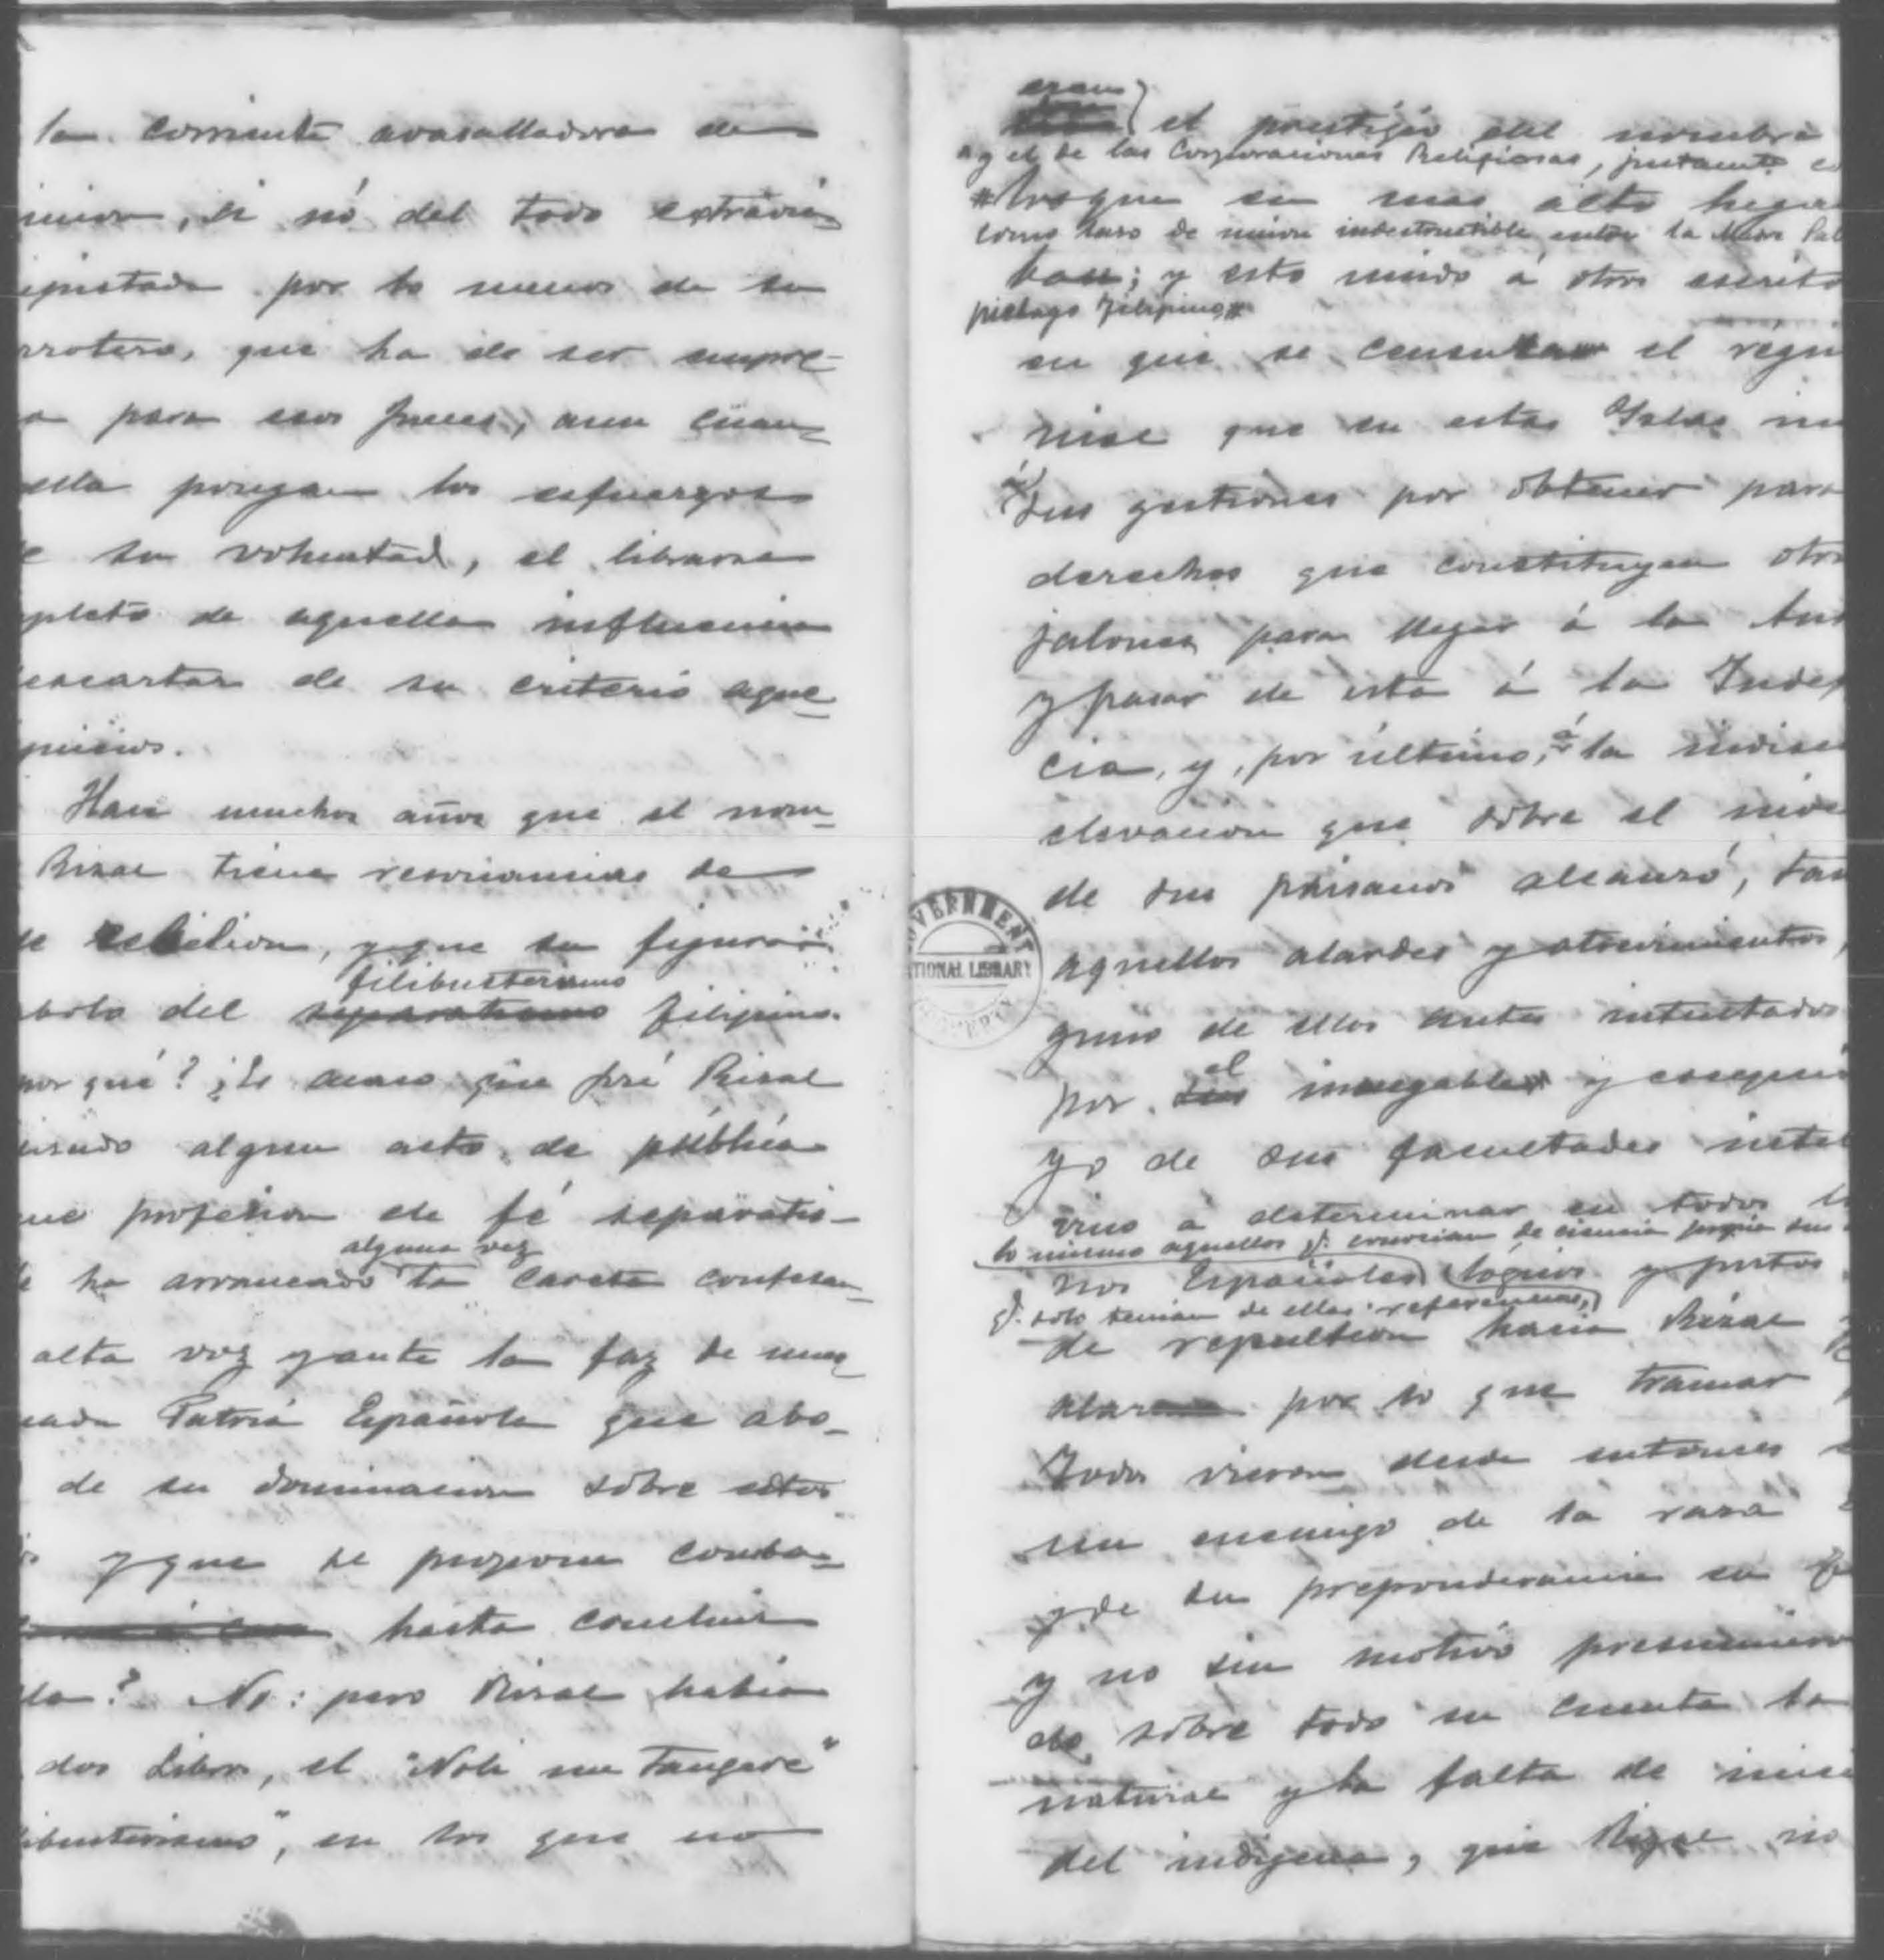 la corriente avasalladora de
inion, si nó del todo extravia
por lo menos de su
rrotero, que ha de ser empre-
a para esos Jueces, aun cuan-
ella pongan los esfuerzos
e su voluntad, el librarse
pleto de aquella influencia
escartar de su criterio aque-
juicios.
Hace muchos años que el nom-
Rizal tiene resonancias de
de rebelion, y que su figura
filibusterismo
bolo del separatismo filipino.
por qué? ¿Es acaso que José Rizal
algun acto de pública
ne profesion de fé separatis-
alguna vez
e ha arrancado la careta confesan-
alta voz y ante la faz de nues-
Patria Española que abo-
de su dominacion sobre estos
y que se propone comba-
hasta concluir
lla? No: pero Rizal habia
dos Libros, el "Noli me Tangere"
ibusterismo", en los que no
eran
el prestigio del nombre
y el de las Corporaciones Religiosas, justamente
los que en mas alto lugar
como laso de union indestructible entre la Madre Pat
ban; y esto unido á otros escrito
pielago Filipino
en que se censuraba el régi
que en estas Islas
á
sus gestiones por obtener para
derechos que constituyen otro
jalones para llegar á la Aut
y pasar de esta á la Indep
cia, y, por último, á la indis
elevacion que sobre el nive
de sus paisanos alcanzó, tan
aquellos alardes y atrevimientos,
guno de ellos antes intentados
el
por sus innegable y
yo de sus facultades intel
vino á determinar en todos l
lo mismo aquellos q. conocian de ciencia propia sus
nos Españoles lógicos y justos
q. solo tenian de ellas referencias,
de repulsion hacia Rizal y
alarma por lo que tramar
Todos vieron desde entonces
un enemigo de la raza
y de su preponderancia en
y no sin motivo presumiero
do sobre todo en cuenta la
natural y la falta de inici
del indígena, que Rizal no
VERNMENT
TIONAL LIBRARY